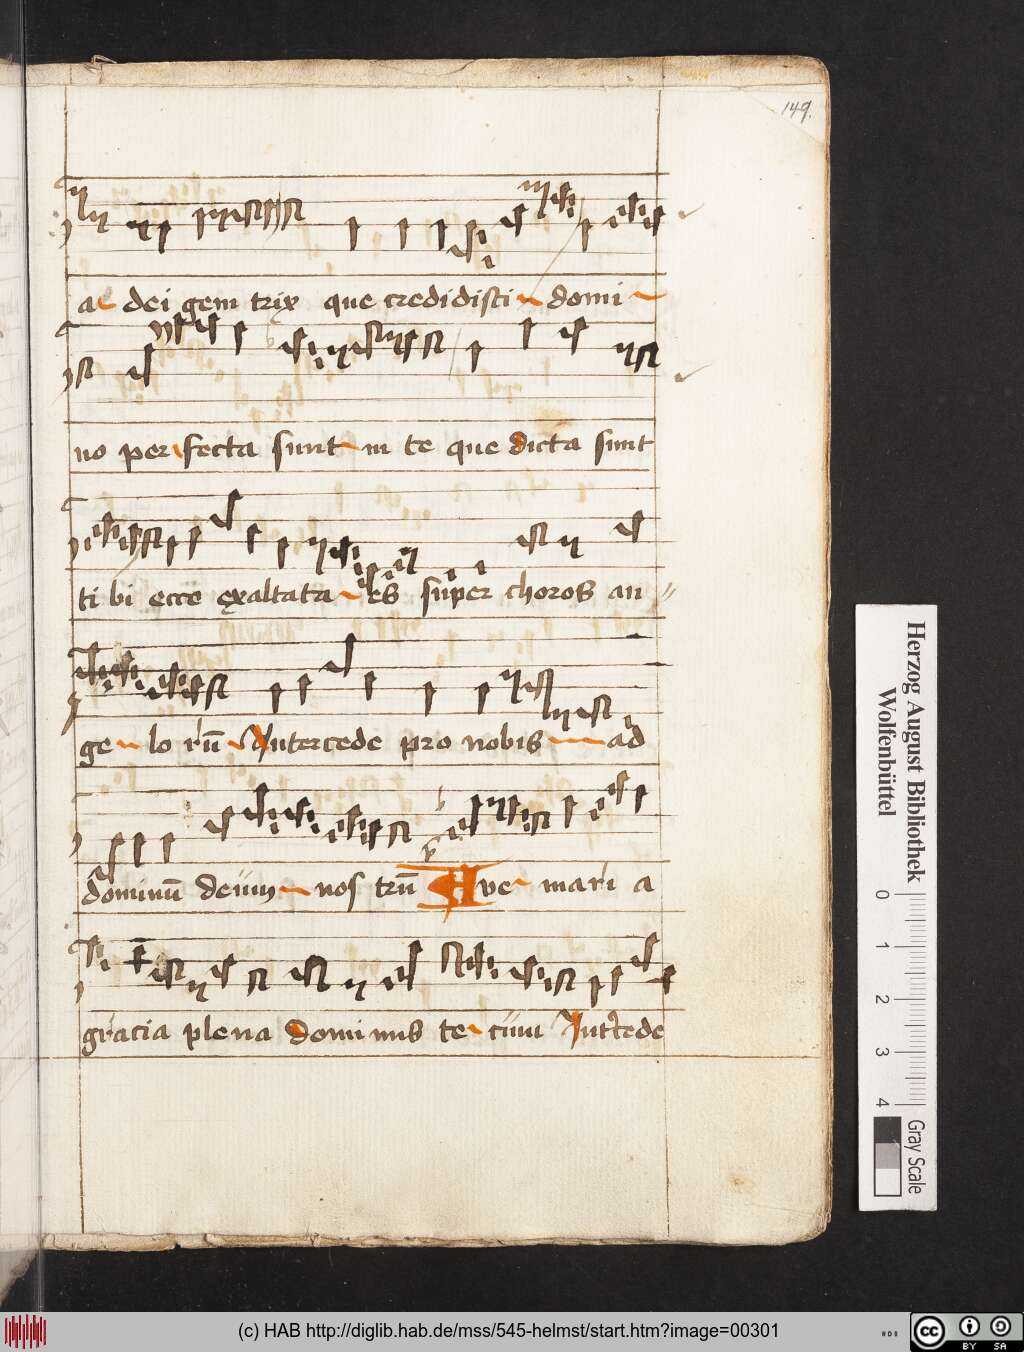 149.
a dei gem trix que credidisti domi
no per fecta sunt in te que dicta sunt
ti bi ecce exaltata es super choros an
ge lo rū Intercede pro nobis ad
dominū deum nos trū Ave mari a
gracia plena domi nus te cum Int̄cede
Herzog August Bibliothek
Wolfenbüttel
0 1 2 3 4
Gray Scale
(c) HAB http://diglib.hab.de/mss/545-helmst/start.htm?image=00301
cc BY SA